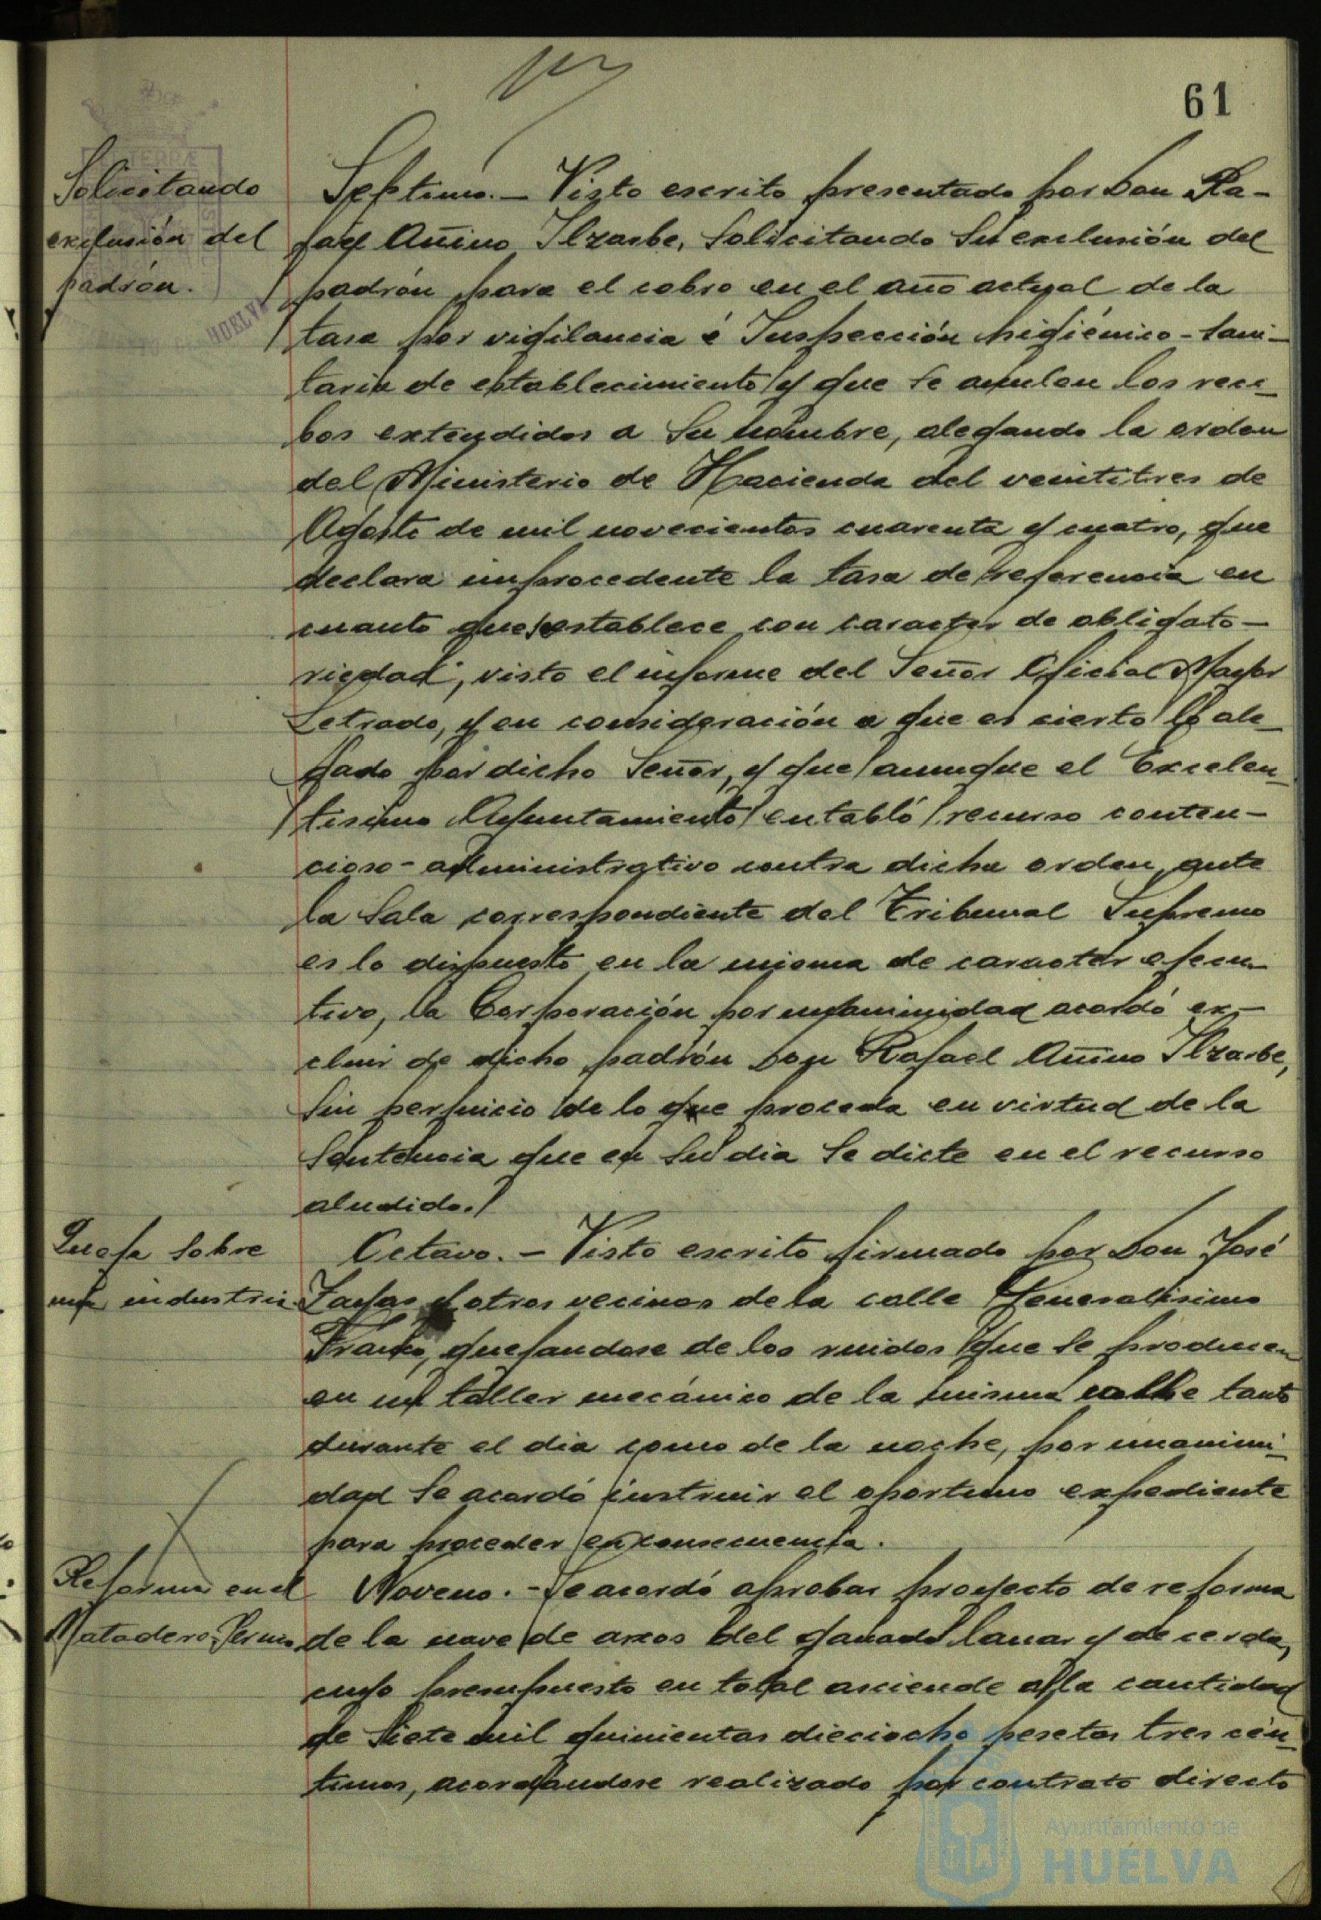 61
Solicitando
exclusión del
padrón.
HUELVA
Septimo.— Visto escrito presentado por Don Ra-
fael Auñino Ilzarbe, Solicitando Su exclusión del
padrón para el cobro en el año actual de la
tasa por vigilancia é Inspección higiénico-sani-
taria de establecimiento y que se anulen los reci-
bos extendidos a Su nombre, alegando la orden
del Ministerio de Hacienda del veintitres de
Agosto de mil novecientos cuarenta y cuatro, que
declara improcedente la tasa de referencia en
cuanto que establece con caracter de obligato-
riedad, visto el informe del Señor Oficial Mayor
Letrado, y en consideración a que es cierto lo ale-
gado por dicho Señor, y que aunque el Excelen-
tisimo Ayuntamiento entabló recurso conten-
cioso-administrativo contra dicha orden, ante
la Sala correspondiente del Tribunal Supremo
es lo dispuesto en la misma de caracter ejecu-
tivo, la Corporación por unanimidad acordó ex-
cluir de dicho padrón Don Rafael Auñino Ilzarbe,
Sin perjuicio de lo que proceda en virtud de la
Sentencia que en Su dia Se dicte en el recurso
aludido.
Queja Sobre
una industria
Octavo.— Visto escrito firmado por Don José
Zayas y otros vecinos de la calle Generalisimo
Franco, quejandose de los ruidos que Se producen
en un taller mecánico de la misma calle tanto
durante el dia como de la noche, por unanimi-
dad Se acordó instruir el oportuno expediente
para proceder en consecuencia.
Reforma en el
Matadero
Noveno.- Se acordó aprobar proyecto de reforma
de la nave de areos del ganado lanar y de cerda,
cuyo presupuesto en total asciende a la cantidad
de Siete mil quinientas dieciocho pesetas tres cén-
timos, acordandose realizado por contrato directo
Ayuntamiento de
HUELVA